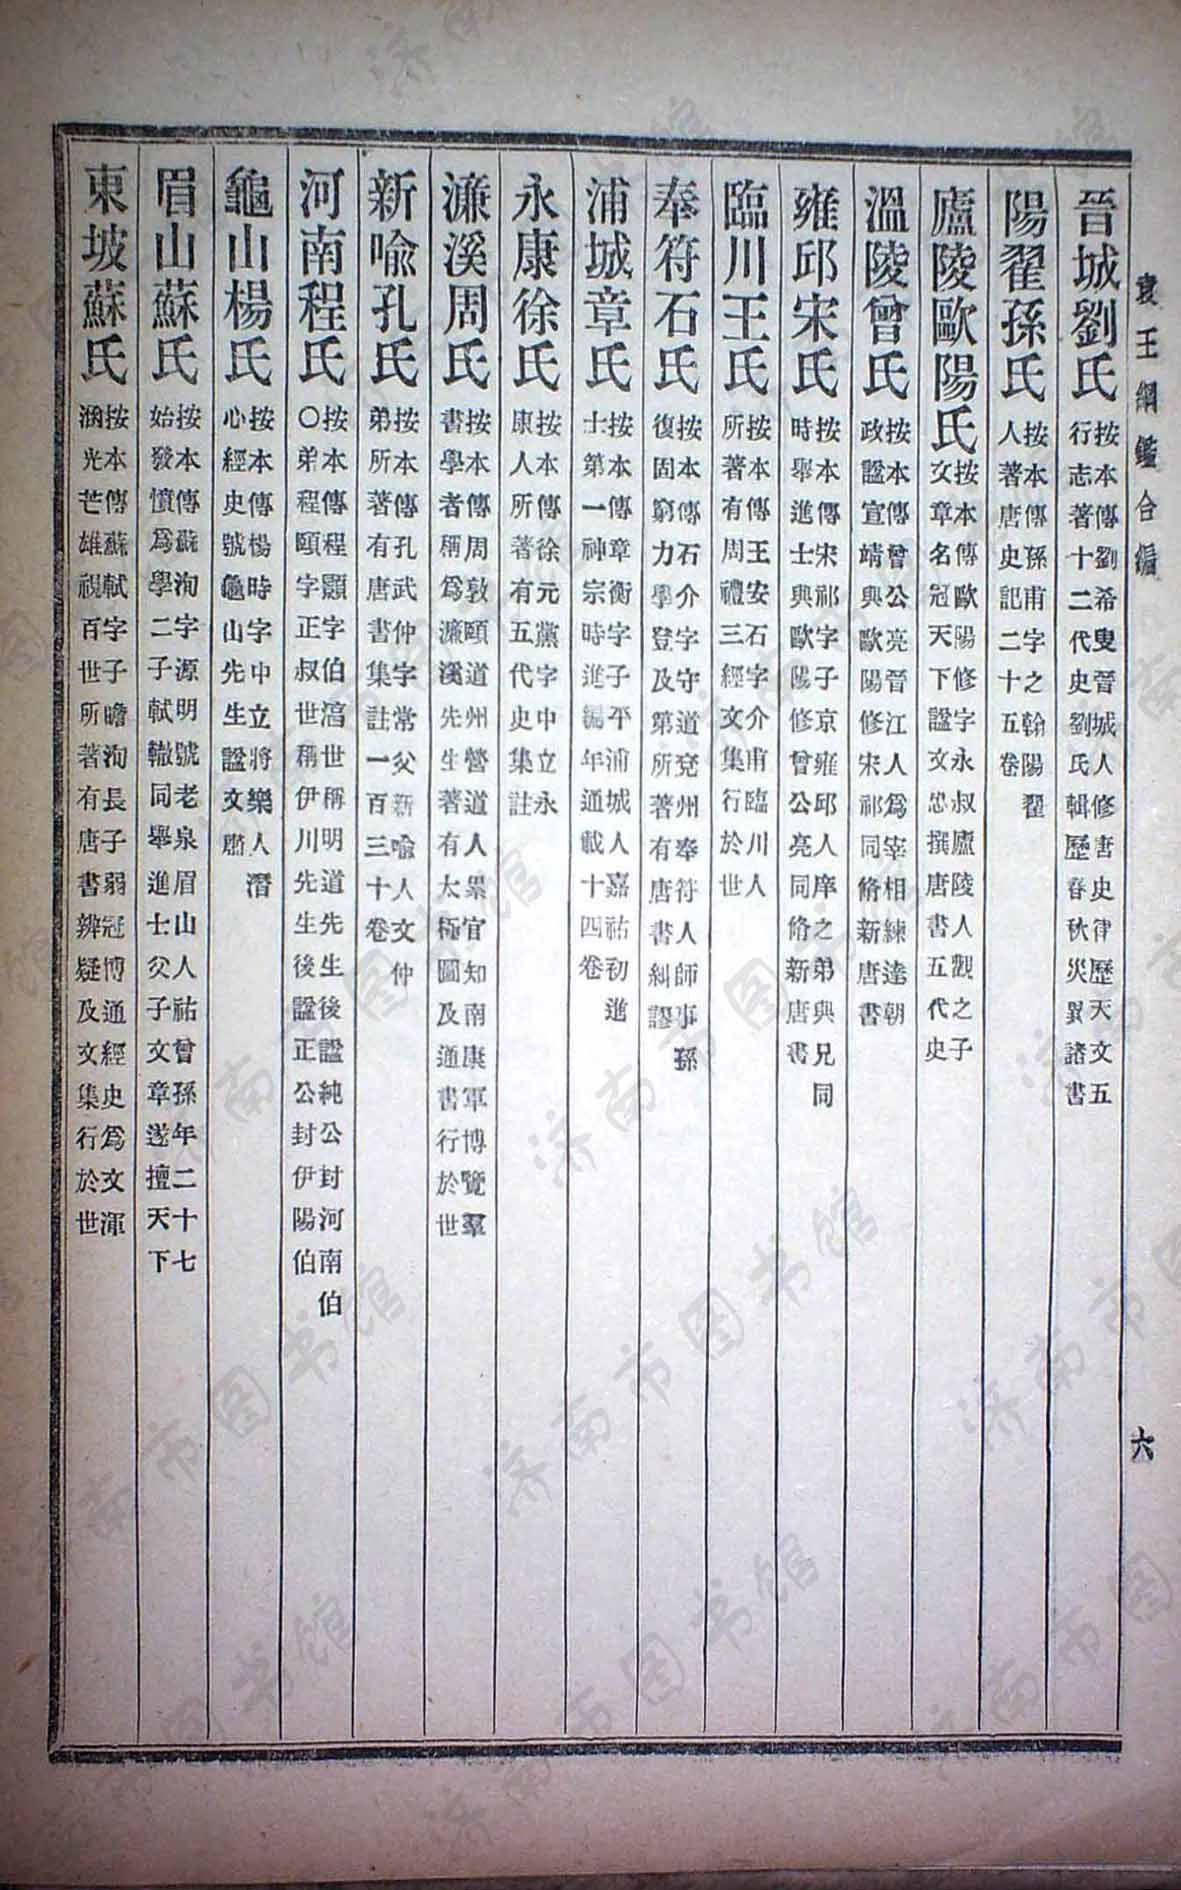 袁王綱鑑合編
六
晉城劉氏
按本傳劉希叟晉城人修唐史律歷天文五
行志著十二代史劉氏輯歷春秋災異諸書
陽翟孫氏
按本傳孫甫字之翰陽翟
人著唐史記二十五卷
廬陵歐陽氏
按本傳歐陽修字永叔廬陵人觀之子
文章名冠天下諡文忠撰唐書五代史
溫陵曾氏
按本傳曾公亮晉江人爲宰相練達朝
政諡宣靖與歐陽修宋祁同脩新唐書
雍邱宋氏
按本傳宋祁字子京雍邱人庠之弟與兄同
時舉進士與歐陽修曾公亮同脩新唐書
臨川王氏
按本傳王安石字介甫臨川人
所著有周禮三經文集行於世
奉符石氏
按本傳石介字守道兗州奉符人師事孫
復固窮力學登及第所著有唐書糾謬
浦城章氏
按本傳章衡字子平浦城人嘉祐初進
士第一神宗時進編年通載十四卷
永康徐氏
按本傳徐元黨字中立永
康人所著有五代史集註
濂溪周氏
按本傳周敦頤道州營道人累官知南康軍博覽羣
書學者稱爲濂溪先生著有太極圖及通書行於世
新喩孔氏
按本傳孔武仲字常父新喩人文仲
弟所著有唐書集註一百三十卷
河南程氏
按本傳程顥字伯淳世稱明道先生後諡純公封河南伯
〇弟程頤字正叔世稱伊川先生後諡正公封伊陽伯
龜山楊氏
按本傳楊時字中立將樂人潛
心經史號龜山先生諡文肅
眉山蘇氏
按本傳蘇洵字源明號老泉眉山人祐曾孫年二十七
始發憤爲學二子軾轍同舉進士父子文章遂擅天下
東坡蘇氏
按本傳蘇軾字子瞻洵長子弱冠博通經史爲文渾
涵光芒雄視百世所著有唐書辨疑及文集行於世
济南市图书馆